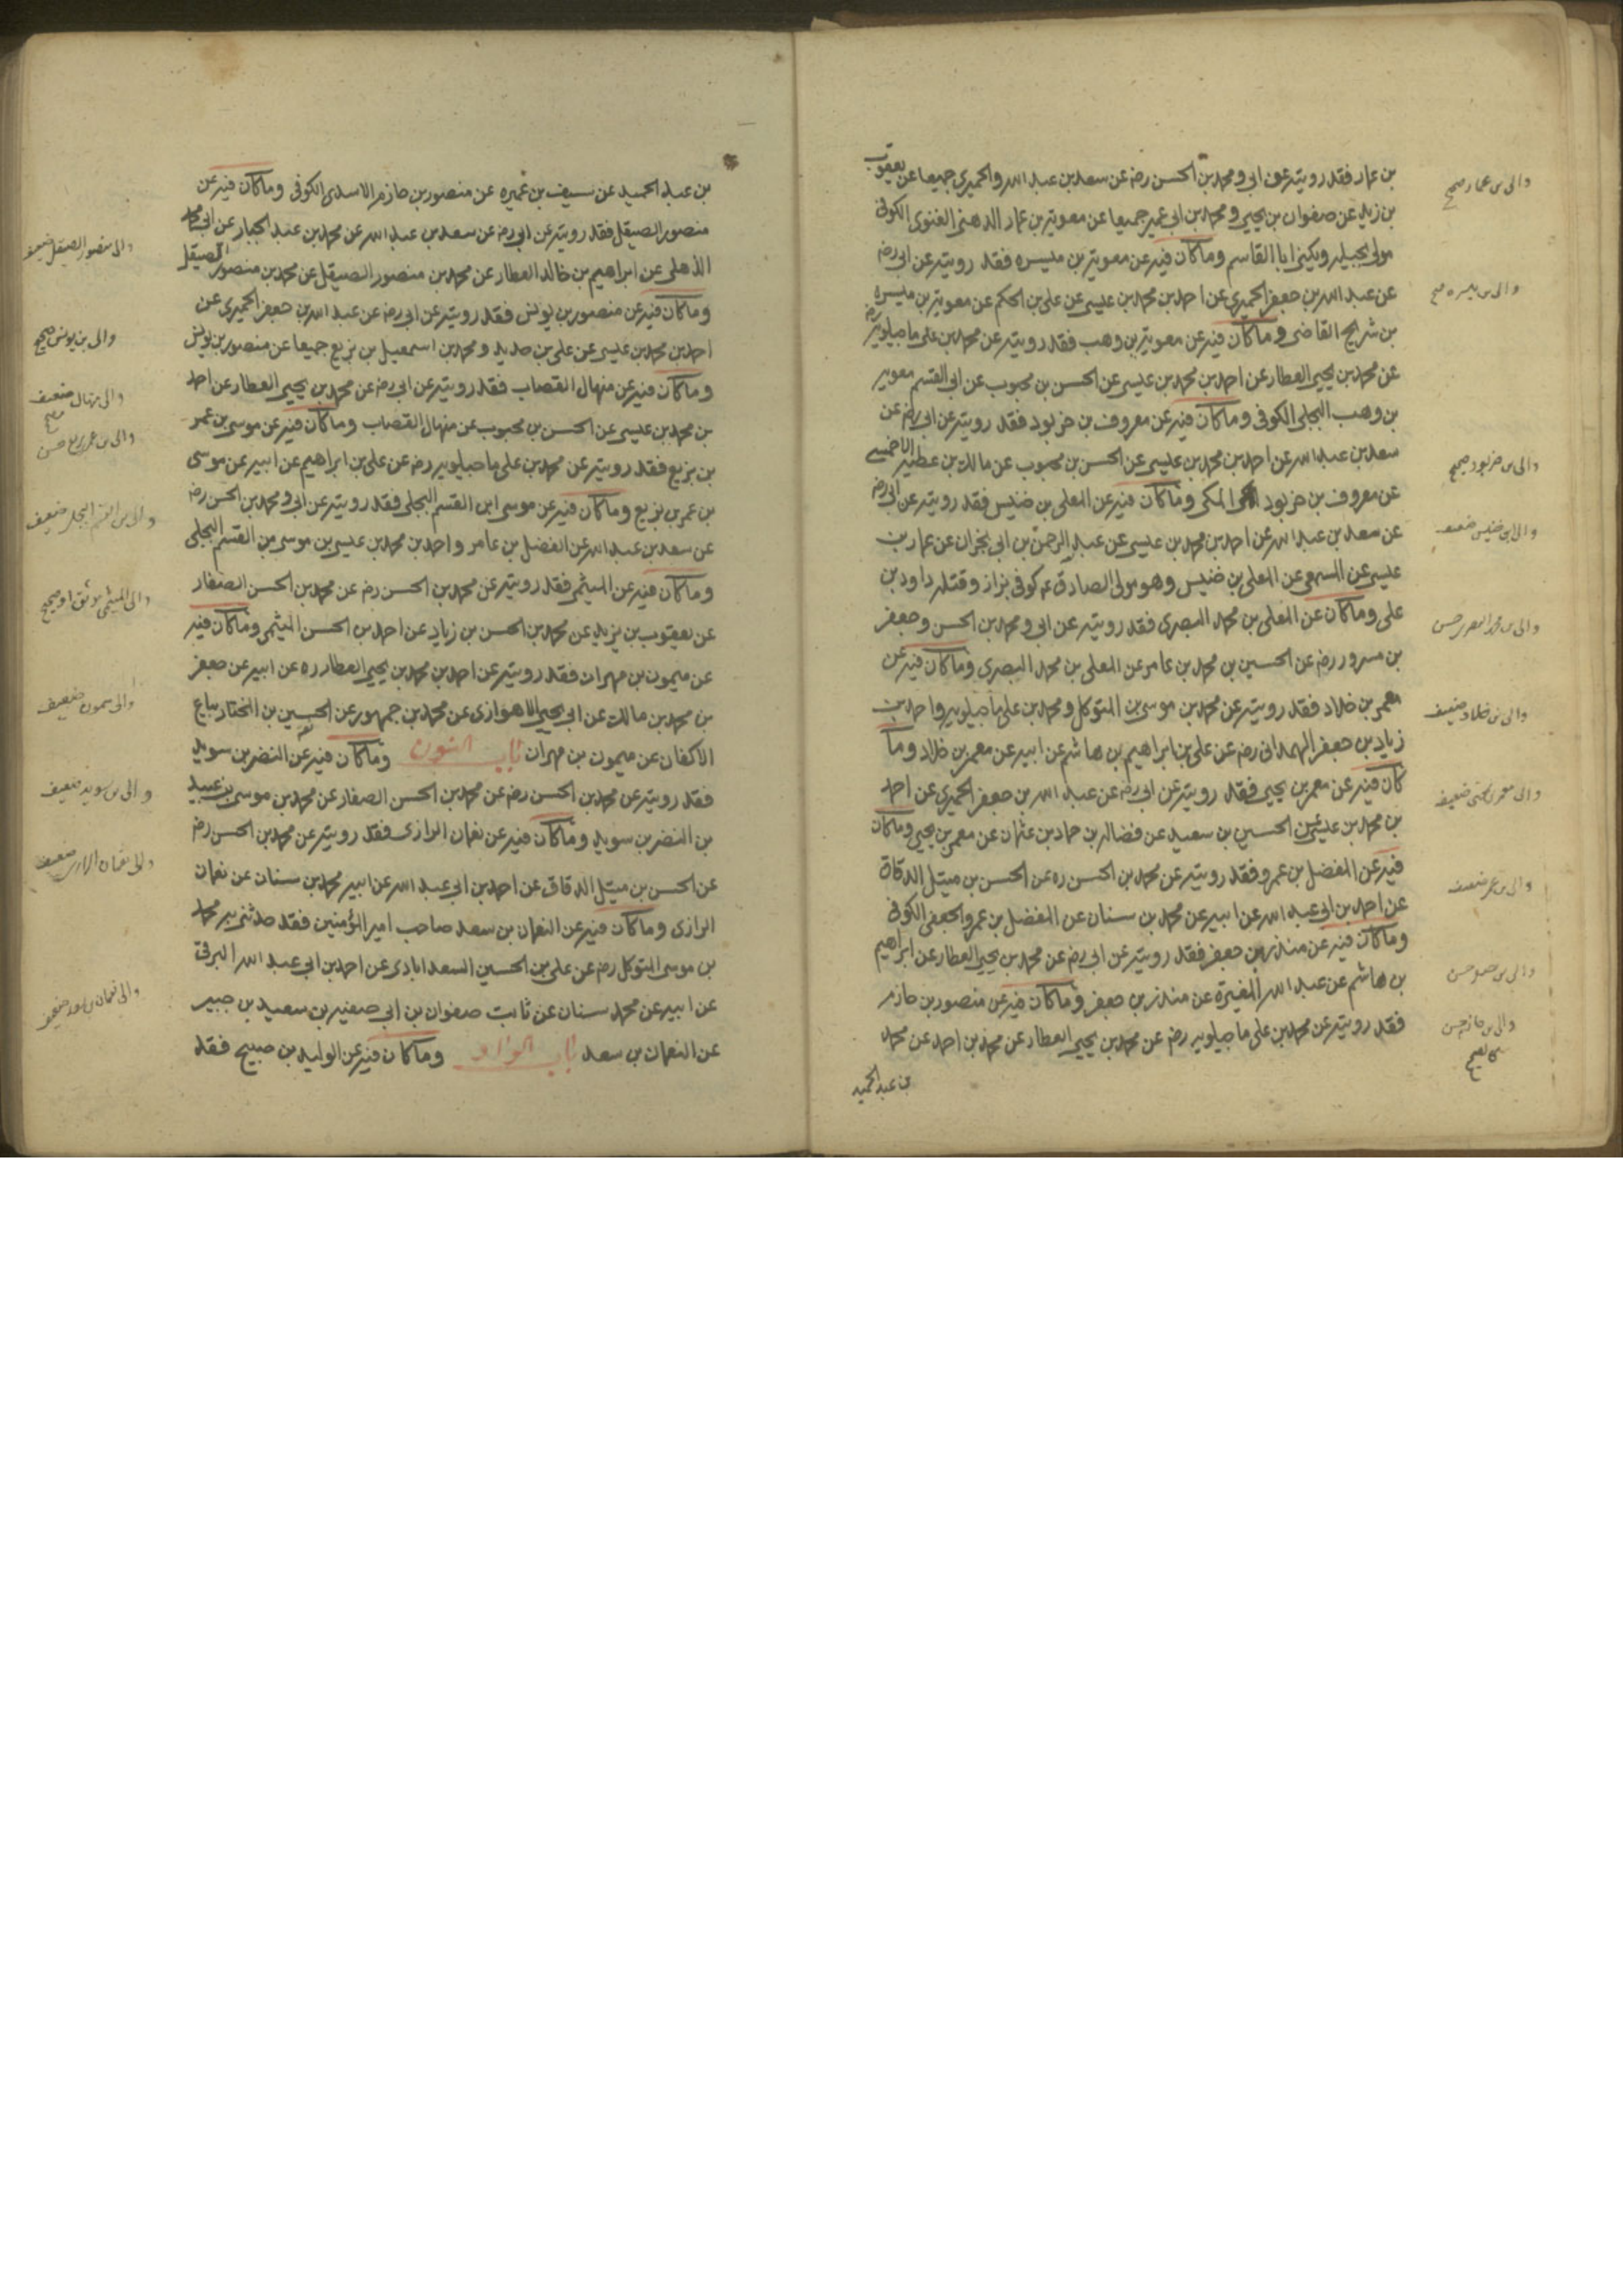 بن عمار فقد رويته عن ابى ومحمد بن الحسن رضه عن سعد بن عبد الله والحميرى جميعا عن يعقوب
بن زيد عن صفوان بن يحيى ومحمد بن ابى عمير جميعا عن معوية بن عمار الدهنى الغنوى الكوفى
مولى بجيلة ويكنى ابا القاسم وماكان فيه عن معوية بن ميسره فقد رويته عن ابى رضه
عن عبد الله بن جعفر الحميرى عن احمد بن محمد بن عيسى عن على بن الحكم عن معوية بن ميسره
بن شريح القاضى وماكان فيه عن معوية بن وهب فقد رويته عن محمد بن على ماجيلويه رضه
عن محمد بن يحيى العطار عن احمد بن محمد بن عيسى عن الحسن بن محبوب عن ابى القسم معويه
بن وهب البجلى الكوفى وماكان فيه عن معروف بن خربوذ فقد رويته عن ابى رضه عن
سعد بن عبد الله عن احمد بن محمد بن عيسى عن الحسن بن محبوب عن مالك بن عطيه الاحمسى
عن معروف بن خربوذ المكى وماكان فيه عن المعلى بن خنيس فقد رويته عن ابى رضه
عن سعد بن عبد الله عن احمد بن محمد بن عيسى عن عبد الرحمن بن ابى نجران عن حماد بن
عيسى عن المسمعى عن المعلى بن خنيس وهو مولى الصادق ع كوفى بزاز وقتله داود بن
على وماكان عن المعلى بن محمد البصرى فقد رويته عن ابى ومحمد بن الحسن وجعفر
بن مسرور رضه عن الحسين بن محمد بن عامر عن المعلى بن محمد البصرى وماكان فيه عن
معمر بن خلاد فقد رويته عن محمد بن موسى بن المتوكل ومحمد بن على ماجيلويه واحمد بن
زياد بن جعفر الهمدانى رضه عن على بن ابراهيم بن هاشم عن ابيه عن معمر بن خلاد وما
كان فيه عن معمر بن يحيى فقد رويته عن ابى رضه عن عبد الله بن جعفر الحميرى عن احمد
بن محمد بن عيسى عن الحسين بن سعيد عن فضاله بن حماد بن عثمان عن معمر بن يحيى وماكان
فيه عن المفضل بن عمرو فقد رويته عن محمد بن الحسن ره عن الحسن بن متيل الدقاق
عن احمد بن ابى عبد الله عن ابيه عن محمد بن سنان عن المفضل بن عمرو الجعفى الكوفى
وماكان فيه عن منذر بن جعفر فقد رويته عن ابى رضه عن محمد بن يحيى العطار عن ابراهيم
بن هاشم عن عبد الله المغيرة عن منذر بن جعفر وماكان فيه عن منصور بن حازم
فقد رويته عن محمد بن على ماجيلويه رضه عن محمد بن يحيى العطار عن محمد بن احمد عن محمد
بن عبد الحميد
والى بن عمار صحيح
والى بن ميسره صح
والى بن خربوذ صحيح
والى ابن خنيس ضعيف
والى بن محمد البصرى حسن
والى بن خلاد ضعيف
والى معمر يحيى ضعيف
والى بن عمر ضعيف
والى بن جعفر حسن
والى بن حازم حسن
بن عبد الحميد عن سيف بن عميره عن منصور بن حازم الاسدى الكوفى وماكان فيه عن
منصور الصيقل فقد رويته عن ابى رضه عن سعد بن عبد الله عن محمد بن عبد الجبار عن ابى محمد
الذهلى عن ابراهيم بن خالد العطار عن محمد بن منصور الصيقل عن محمد بن منصور الصيقل
وماكان فيه عن منصور بن يونس فقد رويته عن ابى رضه عن عبد الله بن جعفر الحميرى عن
احمد بن محمد بن عيسى عن على بن حديد ومحمد بن اسمعيل بن بزيع جميعا عن منصور بن يونس
وماكان فيه عن منهال القصاب فقد رويته عن ابى رضه عن محمد بن يحيى العطار عن احمد
بن محمد بن عيسى عن الحسن بن محبوب عن منهال القصاب وماكان فيه عن موسى بن عمر
بن بزيع فقد رويته عن محمد بن على ماجيلويه رضه عن على بن ابراهيم عن ابيه عن موسى
بن عمر بن بزيع وماكان فيه عن موسى ابن القسم البجلى فقد رويته عن ابى ومحمد بن الحسن رضه
عن سعد بن عبد الله عن الفضل بن عامر واحمد بن محمد بن عيسى بن موسى بن القسم البجلى
وماكان فيه عن الميثمى فقد رويته عن محمد بن الحسن رضه عن محمد بن الحسن الصفار
عن يعقوب بن يزيد عن محمد بن الحسن بن زياد عن احمد بن الحسن الميثمى وماكان فيه
عن ميمون بن مهران فقد رويته عن احمد بن محمد بن يحيى العطار ره عن ابيه عن جعفر
بن محمد بن مالك عن ابى يحيى الاهوازى عن محمد بن جمهور عن الحسين بن المختار بياع
الاكفان عن ميمون بن مهران باب النون وماكان فيه عن النضر بن سويد
فقد رويته عن محمد بن الحسن رضه عن محمد بن الحسن الصفار عن محمد بن موسى بن عبيد
بن النضر بن سويد وماكان فيه عن نعمان الرازى فقد رويته عن محمد بن الحسن رضه
عن الحسن بن متيل الدقاق عن احمد بن ابى عبد الله عن ابيه محمد بن سنان عن نعمان
الرازى وماكان فيه عن النعمان بن سعد صاحب امير المؤمنين فقد حدثنى به محمد
بن موسى المتوكل رضه عن على بن الحسين السعدابادى عن احمد بن ابى عبد الله البرقى
عن ابيه عن محمد سنان عن ثابت صفوان بن ابى صفيه بن سعيد بن جبير
عن النعمان بن سعد باب الواو وماكان فيه عن الوليد بن صبيح فقد
والى منصور الصيقل ضعيف
والى بن يونس صحيح
والى منهال ضعيف
والى بن عمر بن بزيع حسن
والى بن القسم البجلى ضعيف
والى الميثمى موثق او صحيح
والى ميمون ضعيف
والى بن سويد ضعيف
والى نعمان الرازى ضعيف
والى نعمان بن سعد ضعيف